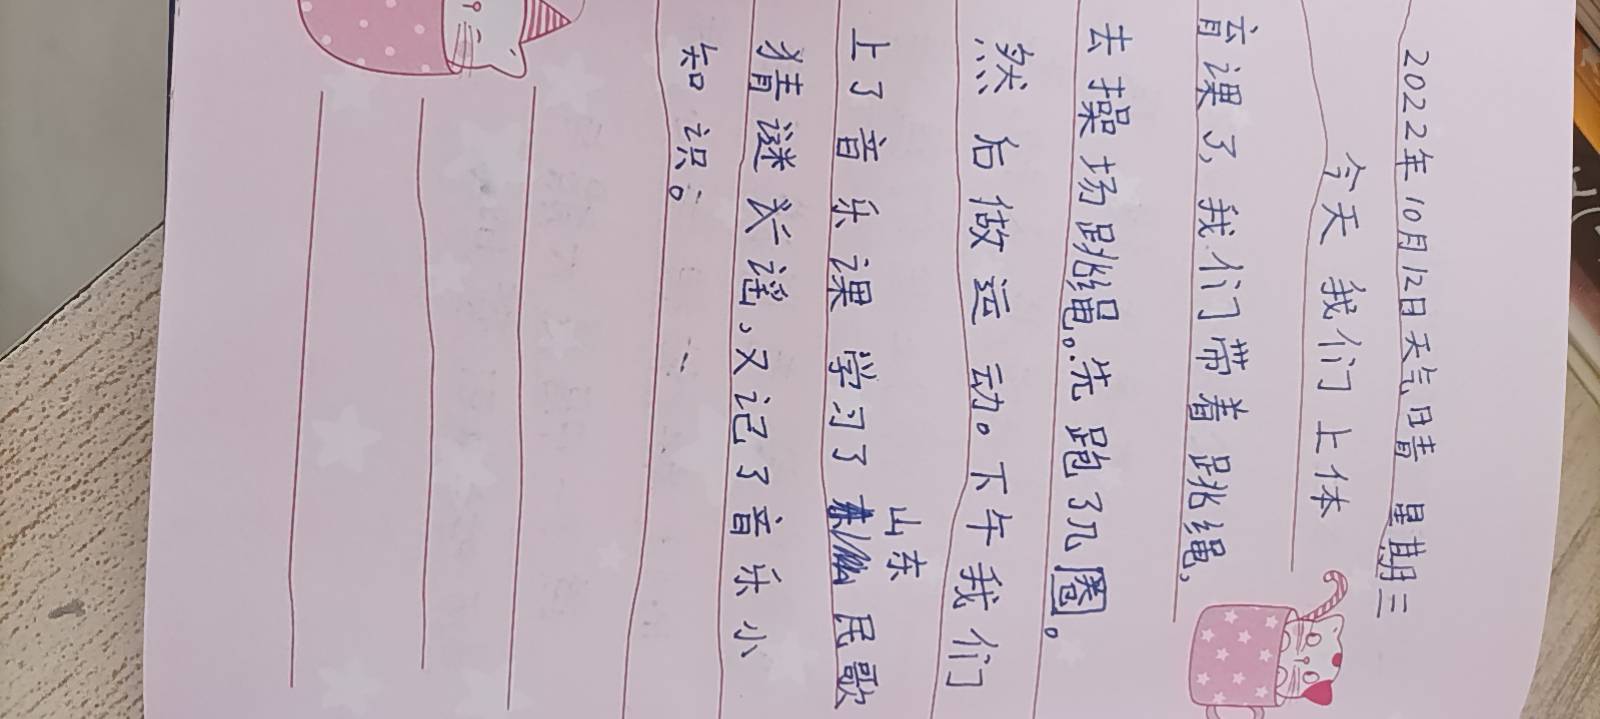 2022年10月12日天气晴 星期三
今天 我们上体
育课了，我们带着跳绳，
去操场跳绳。先跑了几圈。
然后做运动。下午我们
上了音乐课 学习了山东民歌
猜谜长谣、又记了音乐小
知识。